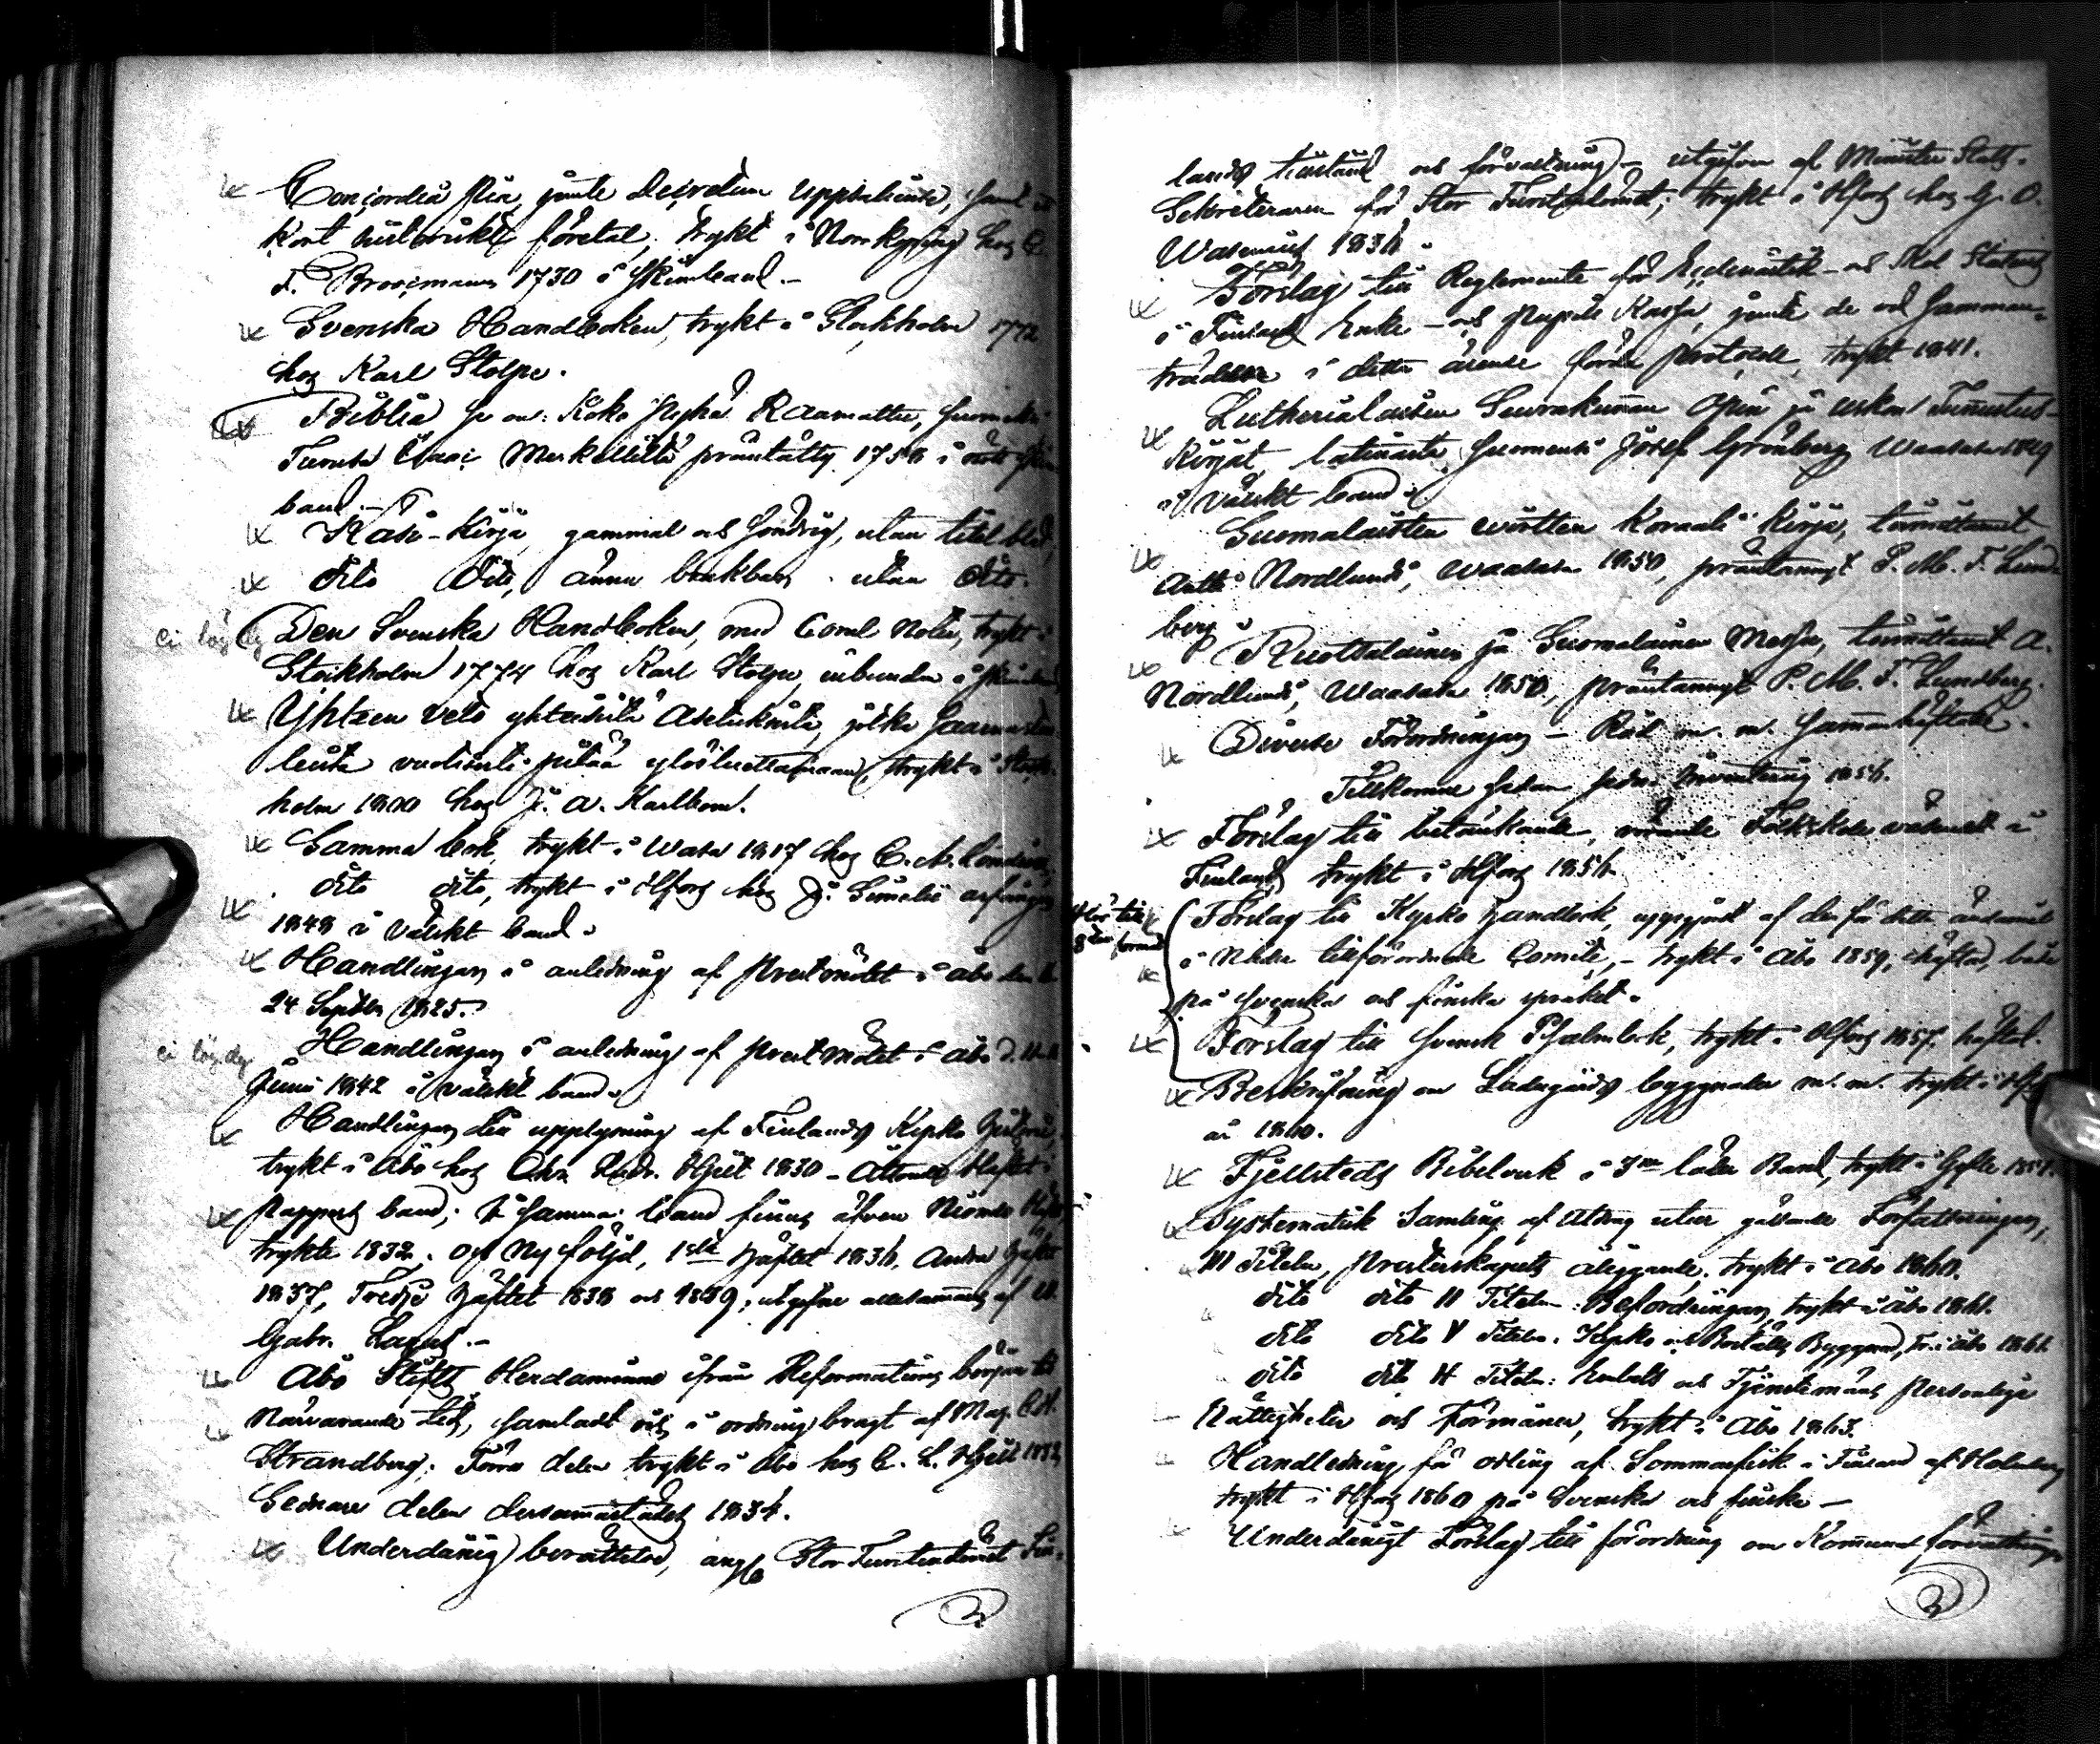 Concordia Pia, jemte Decretum Upsaliense, samt
kort historiskt företal; trykt i Norrkjöping hos
F. Broocmann 1730 i Skinband.-
Svenska Handboken, trykt i Stockholm 1772
hos Karl Stolpe.
Biblia se on: Koko Pyhä Raamattu, Suomexi
Turusa Präntätty 1758 i
band.-
Käsi-Kirja, gammal och söndrig, utan titelblad
dito dito, ännu bräkligare utan dito.
ej löslig
Den Svenska Handboken, med Coml Noter, trykt i
Stockholm 1774 hos Karl Stolpe, inbunden i Skinband
Yhtzen veto yhteisistä Asetuksista, jotka Saarnastuo-
leista vuotisesti pitää ylösluettaman, trykt i Stock-
holm 1800 hos J. A. Karlbom.
Samma bok, trykt i Wasa 1817 hos C. A. Londicer,
dito dito, trykt i Hfors hos J. Simelii arfvingar
1848 i välskt band.
Handlingar i anledning af Prestmötet i Åbo den
24 Septber 1825.
ej löslig
Handlingar i anledning af Prestmötet i Åbo d.
Junii 1842 i välskt band.
Handlingar till upplysning af Finlands Kyrko Historie
trykt i Åbo hos Chr. Ludv. Hjelt 1830 - Åttonde Häftet i
Pappers band; I samma band finns äfven Nionde Häftet
trykte 1832. och Ny följd, 1sta Häftet 1836, Andra Häftet
1837, Tredje Häftet 1838 och 1839; utgifne allesammans af W.
Gabr. Lagus.-
Åbo Stifts Herdaminne ifrån Reformations början till
Närvarande tid, samladt och i ordning bragt af Mag. C. H.
Strandberg. Förra delen trykt i Åbo hos C. L. Hjelt 1832,
Sednare delen dersammastädes 1834.
Underdånig berättelse, ang Stor Furstendömet Fin-
lands tillstånd och förvaltning - utgifven af Minister Stats-
Sekreteraren för Stor Furstendömet; trykt i Hfors hos G. O.
Wasenius 1836.
Förslag till Reglemente för Ecclesiastik- och Skol Statens
i Finland Enke- och Pupill Kassa, jemte de vid Samman-
träden i detta ärende förda protocoll, trykt 1841.
Lutherialaisen Seurakunnan Opin ja uskon Tunnustus-
Kirjat, latinasta Suomensi Josef Grönberg Waasasa 1849
i välskt band.
Suomalaisten wirtten Koraali Kirja, toimittanut
Antti Nordlund, Waasasa 1850, präntännyt P. M. F. Lund-
berg.
Ruottalainen ja Suomalainen Messu, toimittanut A.
Nordlund, Waasasa 1850, präntännyt P. M. F. Lundberg.
Diverse Förordningar - Råd m. m. Sammanhäftade.
Tillkomne sedan sedn. Inventering 1856.
Förslag till betänkande, rörande Folkskoleväsendet i
Finland, trykt i Hfors 1856.
Hör till
Förslag till Kyrko handbok, uppgjord af den för detta ändamål
i Nåder tillförordnade Comité, - trykt i Åbo 1859, häftad, både
på Svenska och finska språket.
Förslag till Svensk Psalmbok, trykt i Hfors 1857. häftad.
Beskrifning om Ladugårds byggnader m. m. trykt i Hfors
år 1860.
Fjellsteds Bibelverk i 3ne lösa Band, trykt i Gefle
Systematisk Samling af Utdrag utur gällande Författningar,
III Titeln, Presterskapets åligganden. trykt i Åbo 1860.
dito dito II Titeln: Befordringar, trykt i Åbo 1861.
dito dito V Titeln. Kyrko och Boställs Byggnad, tr. i Åbo 1861.
dito dito Titeln: Embets och Tjenstemäns Personliga
Rättigheter och Förmåner, trykt i Åbo 1863.
Handledning för odling af Sommarfisk i Finland af Holmberg
trykt i Hfors 1860 på Svenska och finska -
Underdånigt Förslag till förordning om Kommunal förvaltningen